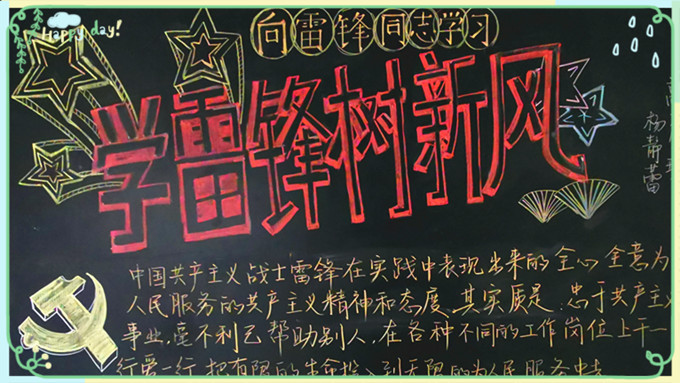 Happy day!
向雷锋同志学习
学雷锋树新风
杨静蕾
中国共产主义战士雷锋在实践中表现出来的全心全意为
人民服务的共产主义精神和态度,其实质是:忠于共产主义
事业,毫不利己帮助别人,在各种不同的工作岗位上干一
行爱一行,把有限的生命投入到无限的为人民服务中去